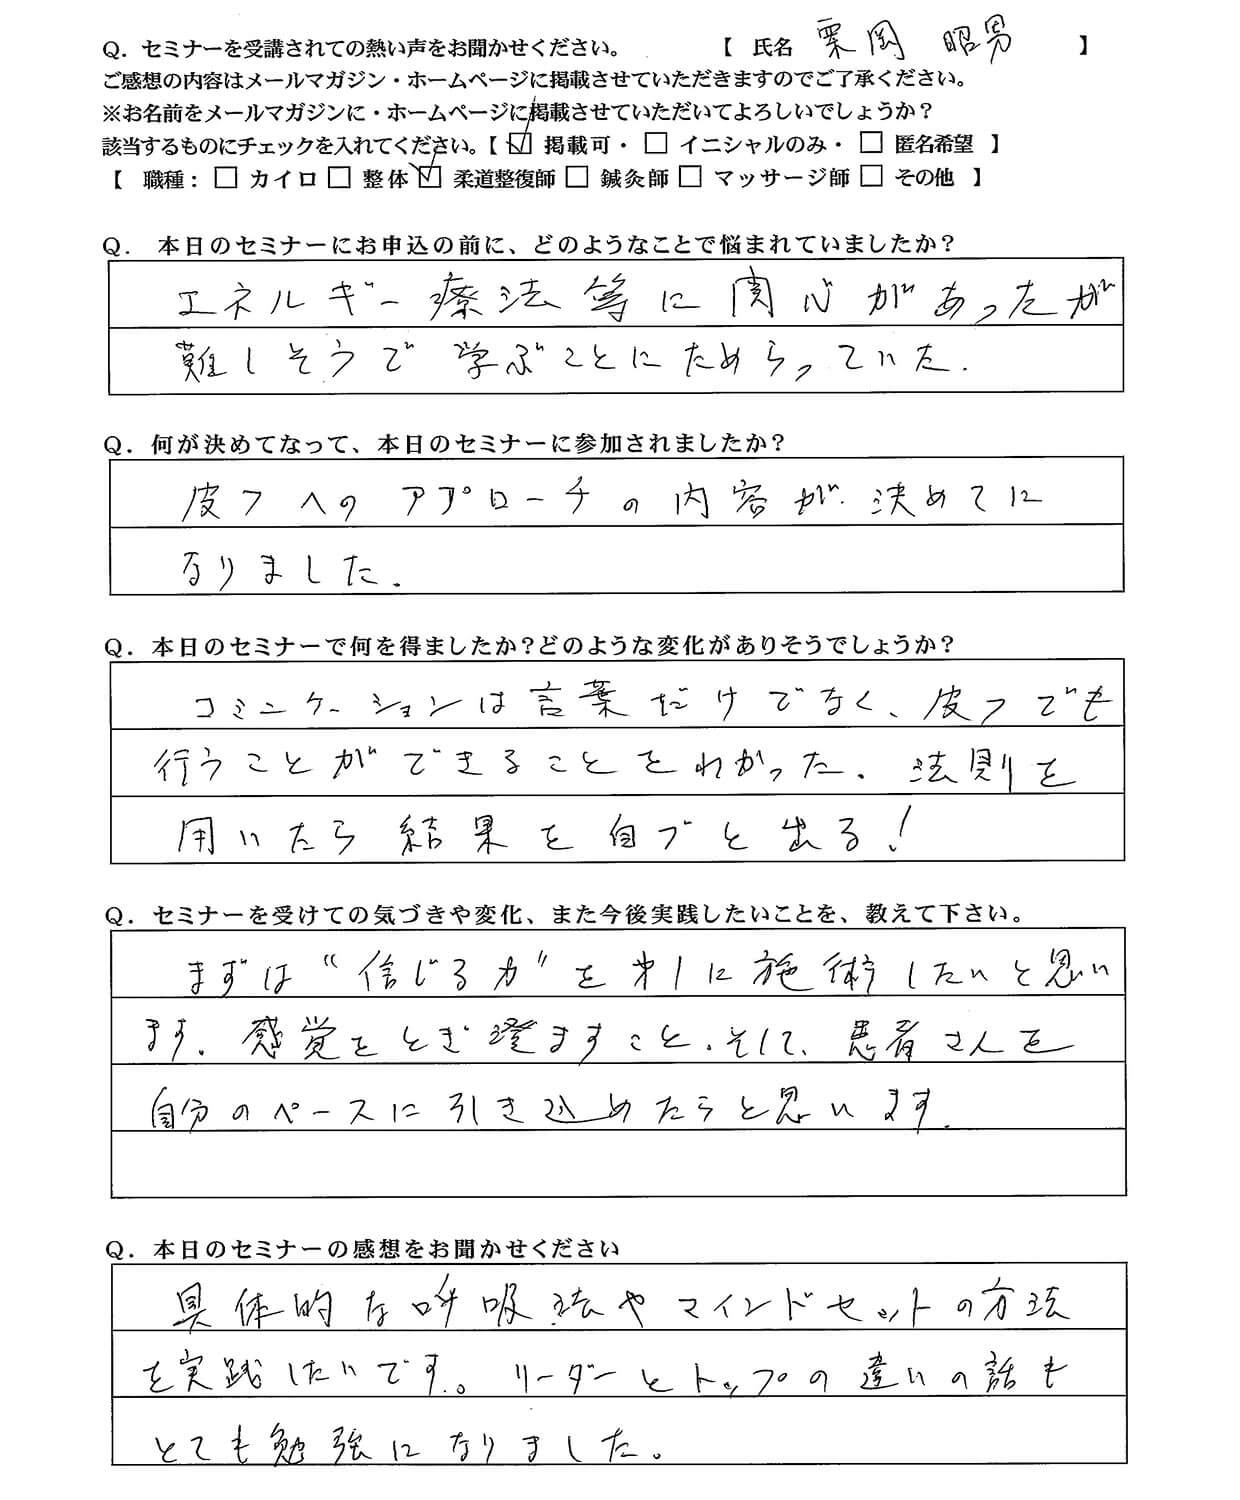 Q．セミナーを受講されての熱い声をお聞かせください。　【　氏名　栗岡　昭男　】
ご感想の内容はメールマガジン・ホームページに掲載させていただきますのでご了承ください。
※お名前をメールマガジンに・ホームページに掲載させていただいてよろしいでしょうか？
該当するものにチェックを入れてください。【 ☑ 掲載可・ □ イニシャルのみ・ □ 匿名希望 】
【　職種： □ カイロ □ 整体 ☑ 柔道整復師 □ 鍼灸師 □ マッサージ師 □ その他 】
Q．　本日のセミナーにお申込の前に、どのようなことで悩まれていましたか？
エネルギー療法等に関心があったが
難しそうで学ぶことにためらっていた.
Q．何が決めてなって、本日のセミナーに参加されましたか？
皮フへのアプローチの内容が決めてに
なりました.
Q．本日のセミナーで何を得ましたか？どのような変化がありそうでしょうか？
コミニケーションは言葉だけでなく、皮フでも
行うことができることをわかった. 法則を
用いたら結果を自ブと出る!
Q．セミナーを受けての気づきや変化、また今後実践したいことを、教えて下さい。
まずは“信じる力”を第1に施術したいと思い
ます. 感覚をとぎ澄ますこと. そして、患者さんを
自分のペースに引き込めたらと思います.
Q．本日のセミナーの感想をお聞かせください
具体的な呼吸法やマインドセットの方法
を実践したいです。リーダーとトップの違いの話も
とても勉強になりました。